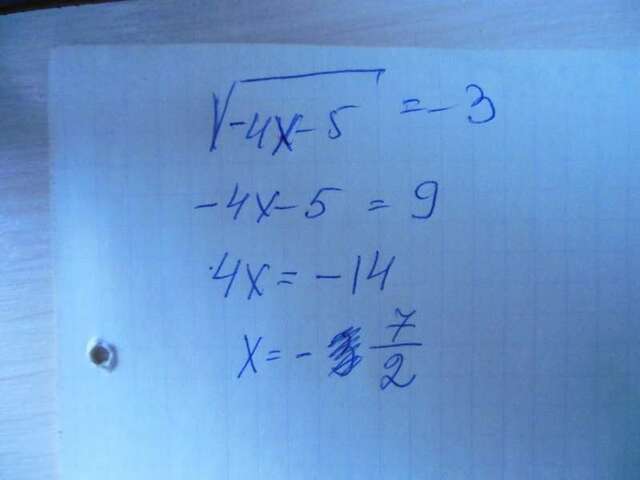 √-4x-5 = -3
-4x-5 = 9
4x = -14
x = - 7/2